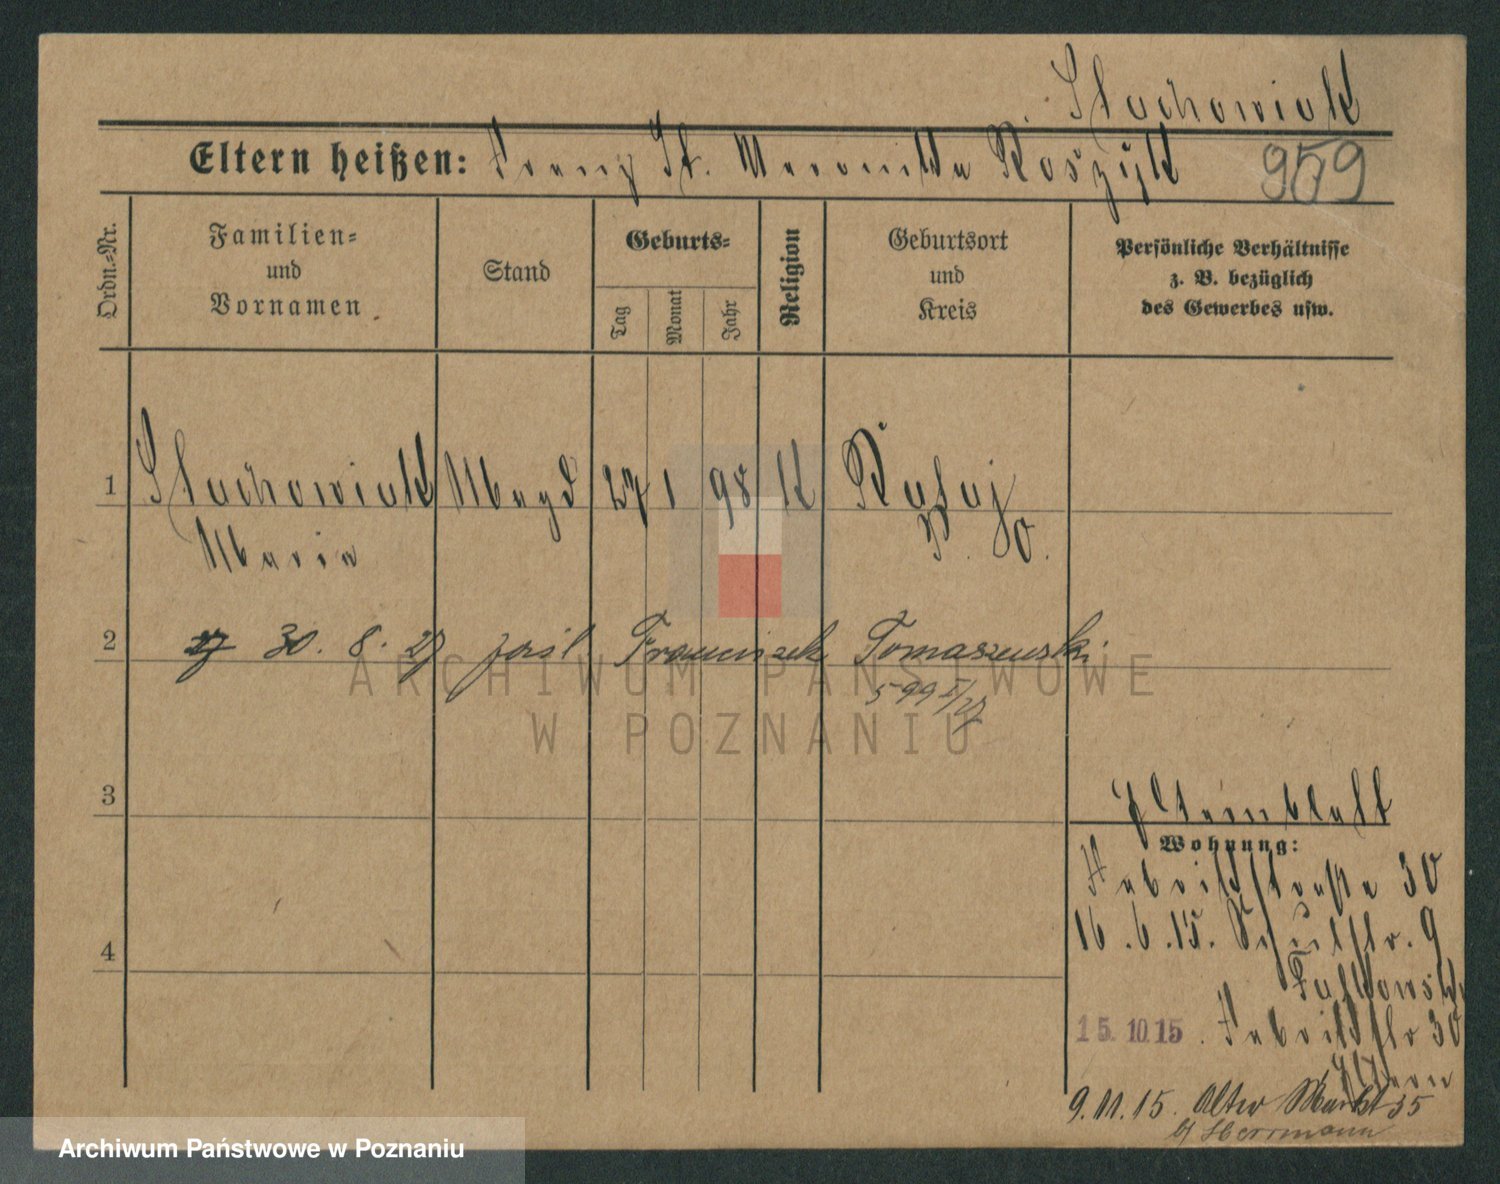 Stachowiak
Eltern heißen: Franz St. Veronika Koszyk 959
Ordn.-Nr.
Familien=
und
Vornamen
Stand
Geburts=
Tag
Monat
Jahr
Religion
Geburtsort
und
Kreis
Persönliche Verhältnisse
z. B. bezüglich
des Gewerbes usw.
1 Stachowiak Magd 27 1 98 K
Maria P. O.
2 30. 8. 27 jest Franciszek Tomaszewski
599 I/27
3
4
Wohnung:
Fabrikstraße 30
16.6.15. Schulstr. 9
15.10.15. Fabrikstr 30
Eltern
9.11.15. Alter Markt 35
b/ Herrmann
ARCHIWUM PAŃSTWOWE
W POZNANIU
Archiwum Państwowe w Poznaniu